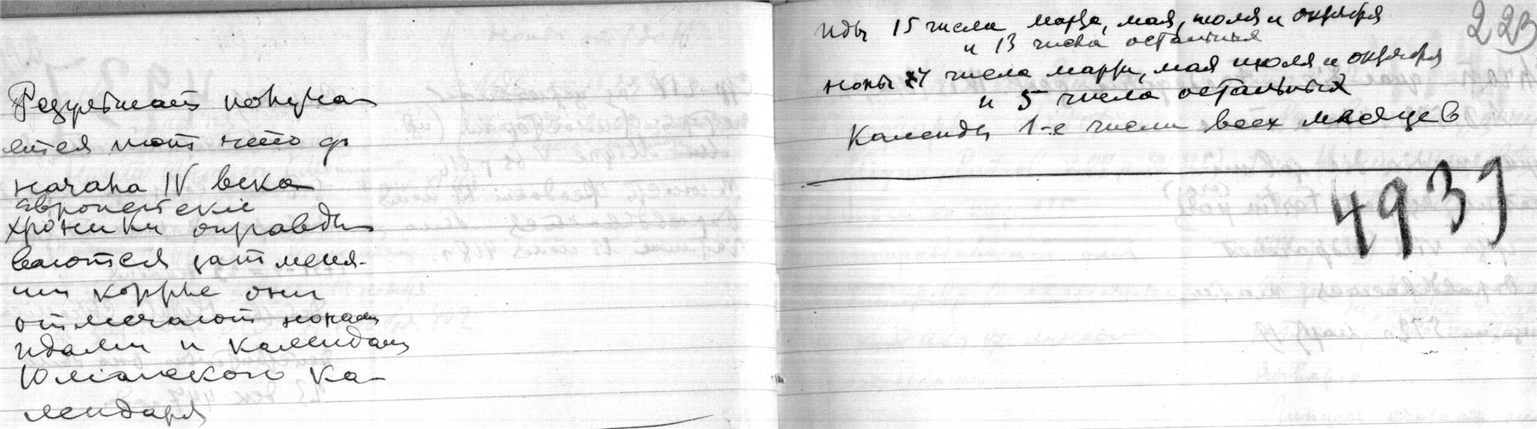 Результат получа
ется тот что с
начала IV века
европейские
хроники оправды
ваются затмения-
ми которые они
отмечают нонами
идами и календами
Юлианского ка-
лендаря
Иды 15 числа марта, мая, июля и октября
и 13 числа остальных
Ноны 7 числа марта, мая июля и октября
и 5 числа остальных
Календы 1-е число всех месяцев
223